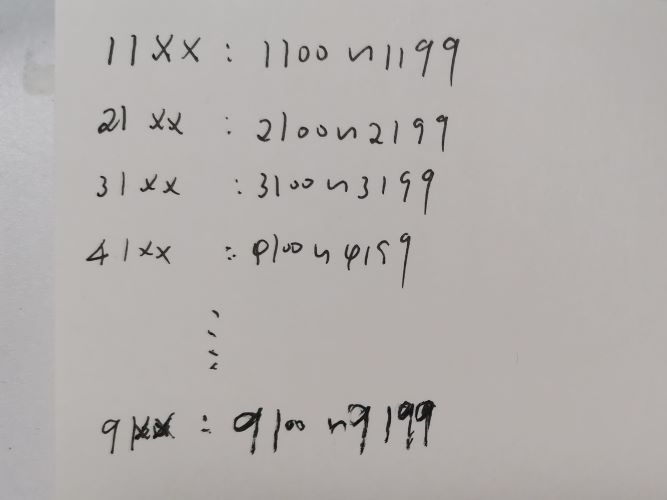 11XX : 1100~1199
21XX : 2100~2199
31XX : 3100~3199
41XX : 4100~4199
⋮
91XX : 9100~9199